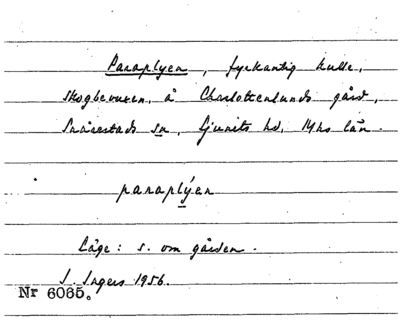 Paraplyen, fyrkantig kulle,
skogbevuxen, å Charlottenlunds gård,
Snårestads sn, Ljunits hd, Mhs län.
paraplýen
Läge: s. om gården.
I. Ingers 1956.
Nr 6065.